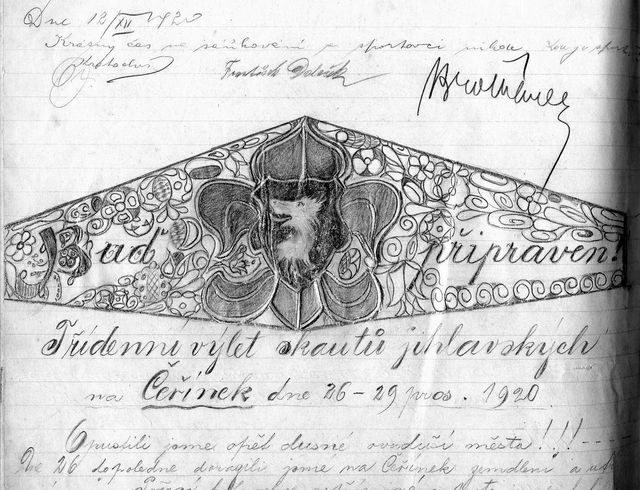 Dne 12/XII 1920
Krásný čas se sáňkování a sportovci nikde.
Kratochvíl František Doležal
Buď připraven!
Třídenní výlet skautů jihlavských
na Čeřínek dne 26-29 pros. 1920
Opustili jsme opět dusné ovzduší města!!!
Dne 26 dopoledne dorazili jsme na Čeřínek zemdlení a